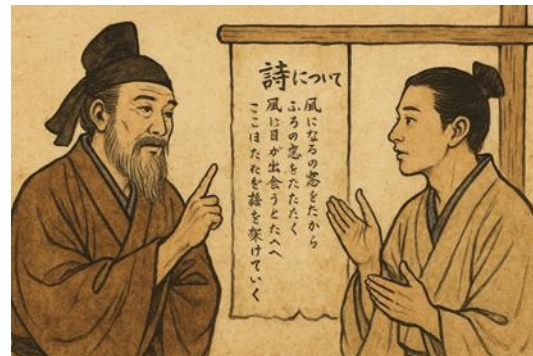 詩について
風になるの窓をたから
ふるの窓をたたたく
風に目が出会うとたへへ
ここはたたを語を架けていく